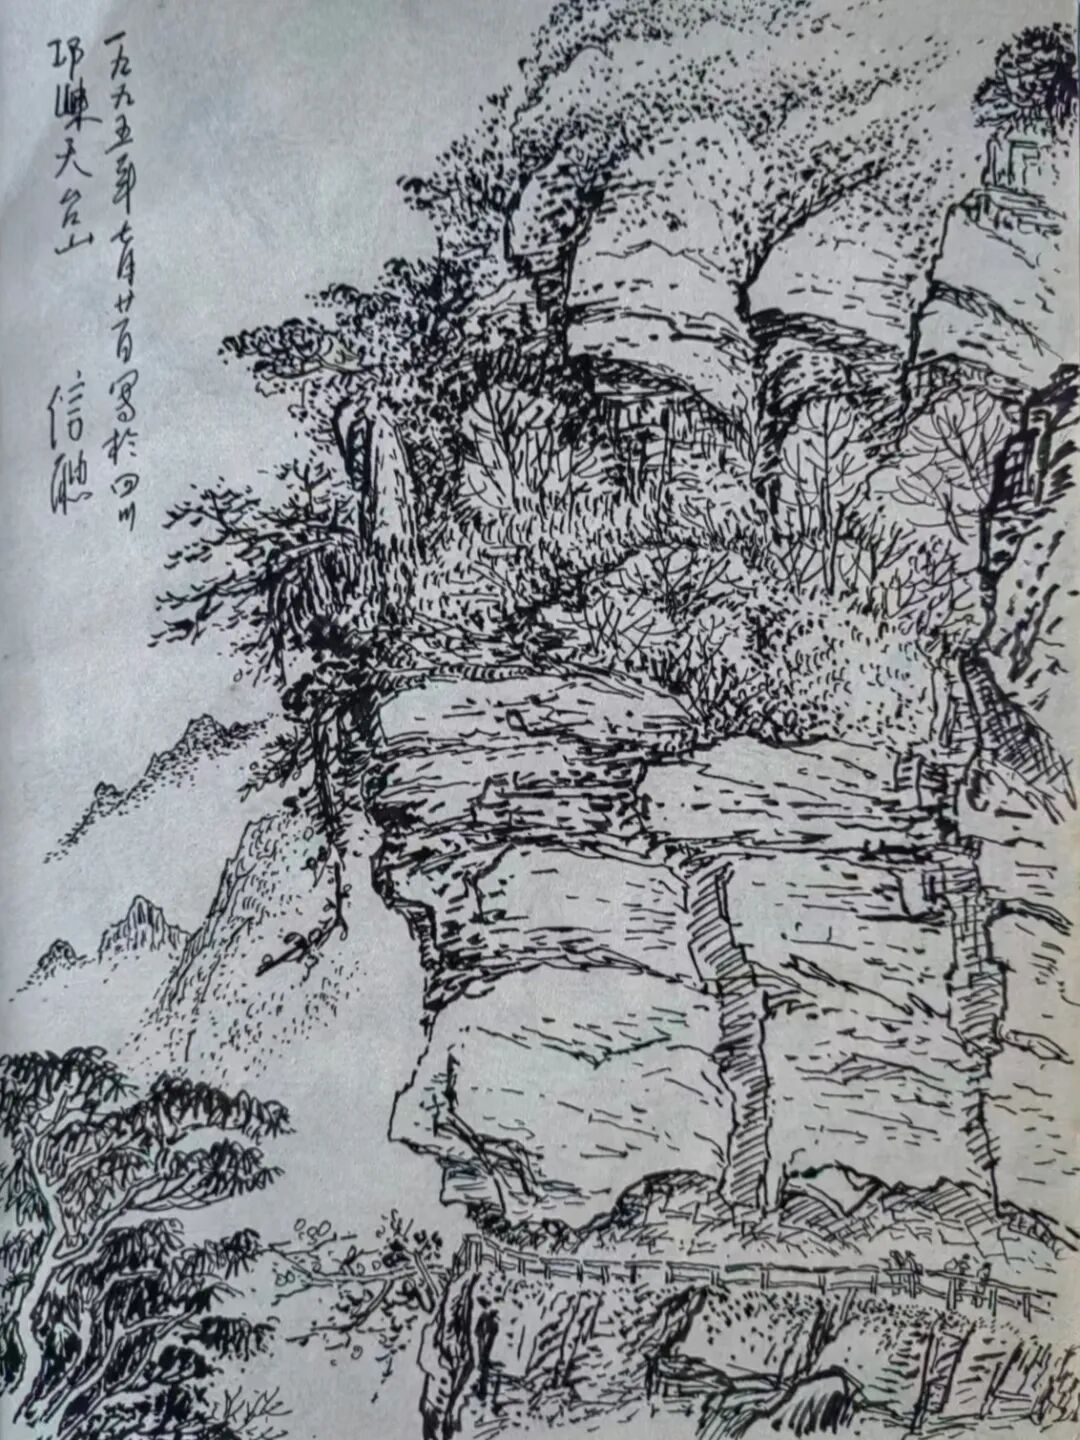 一九九五年七月廿一日寫於四川
邛崍天台山
信